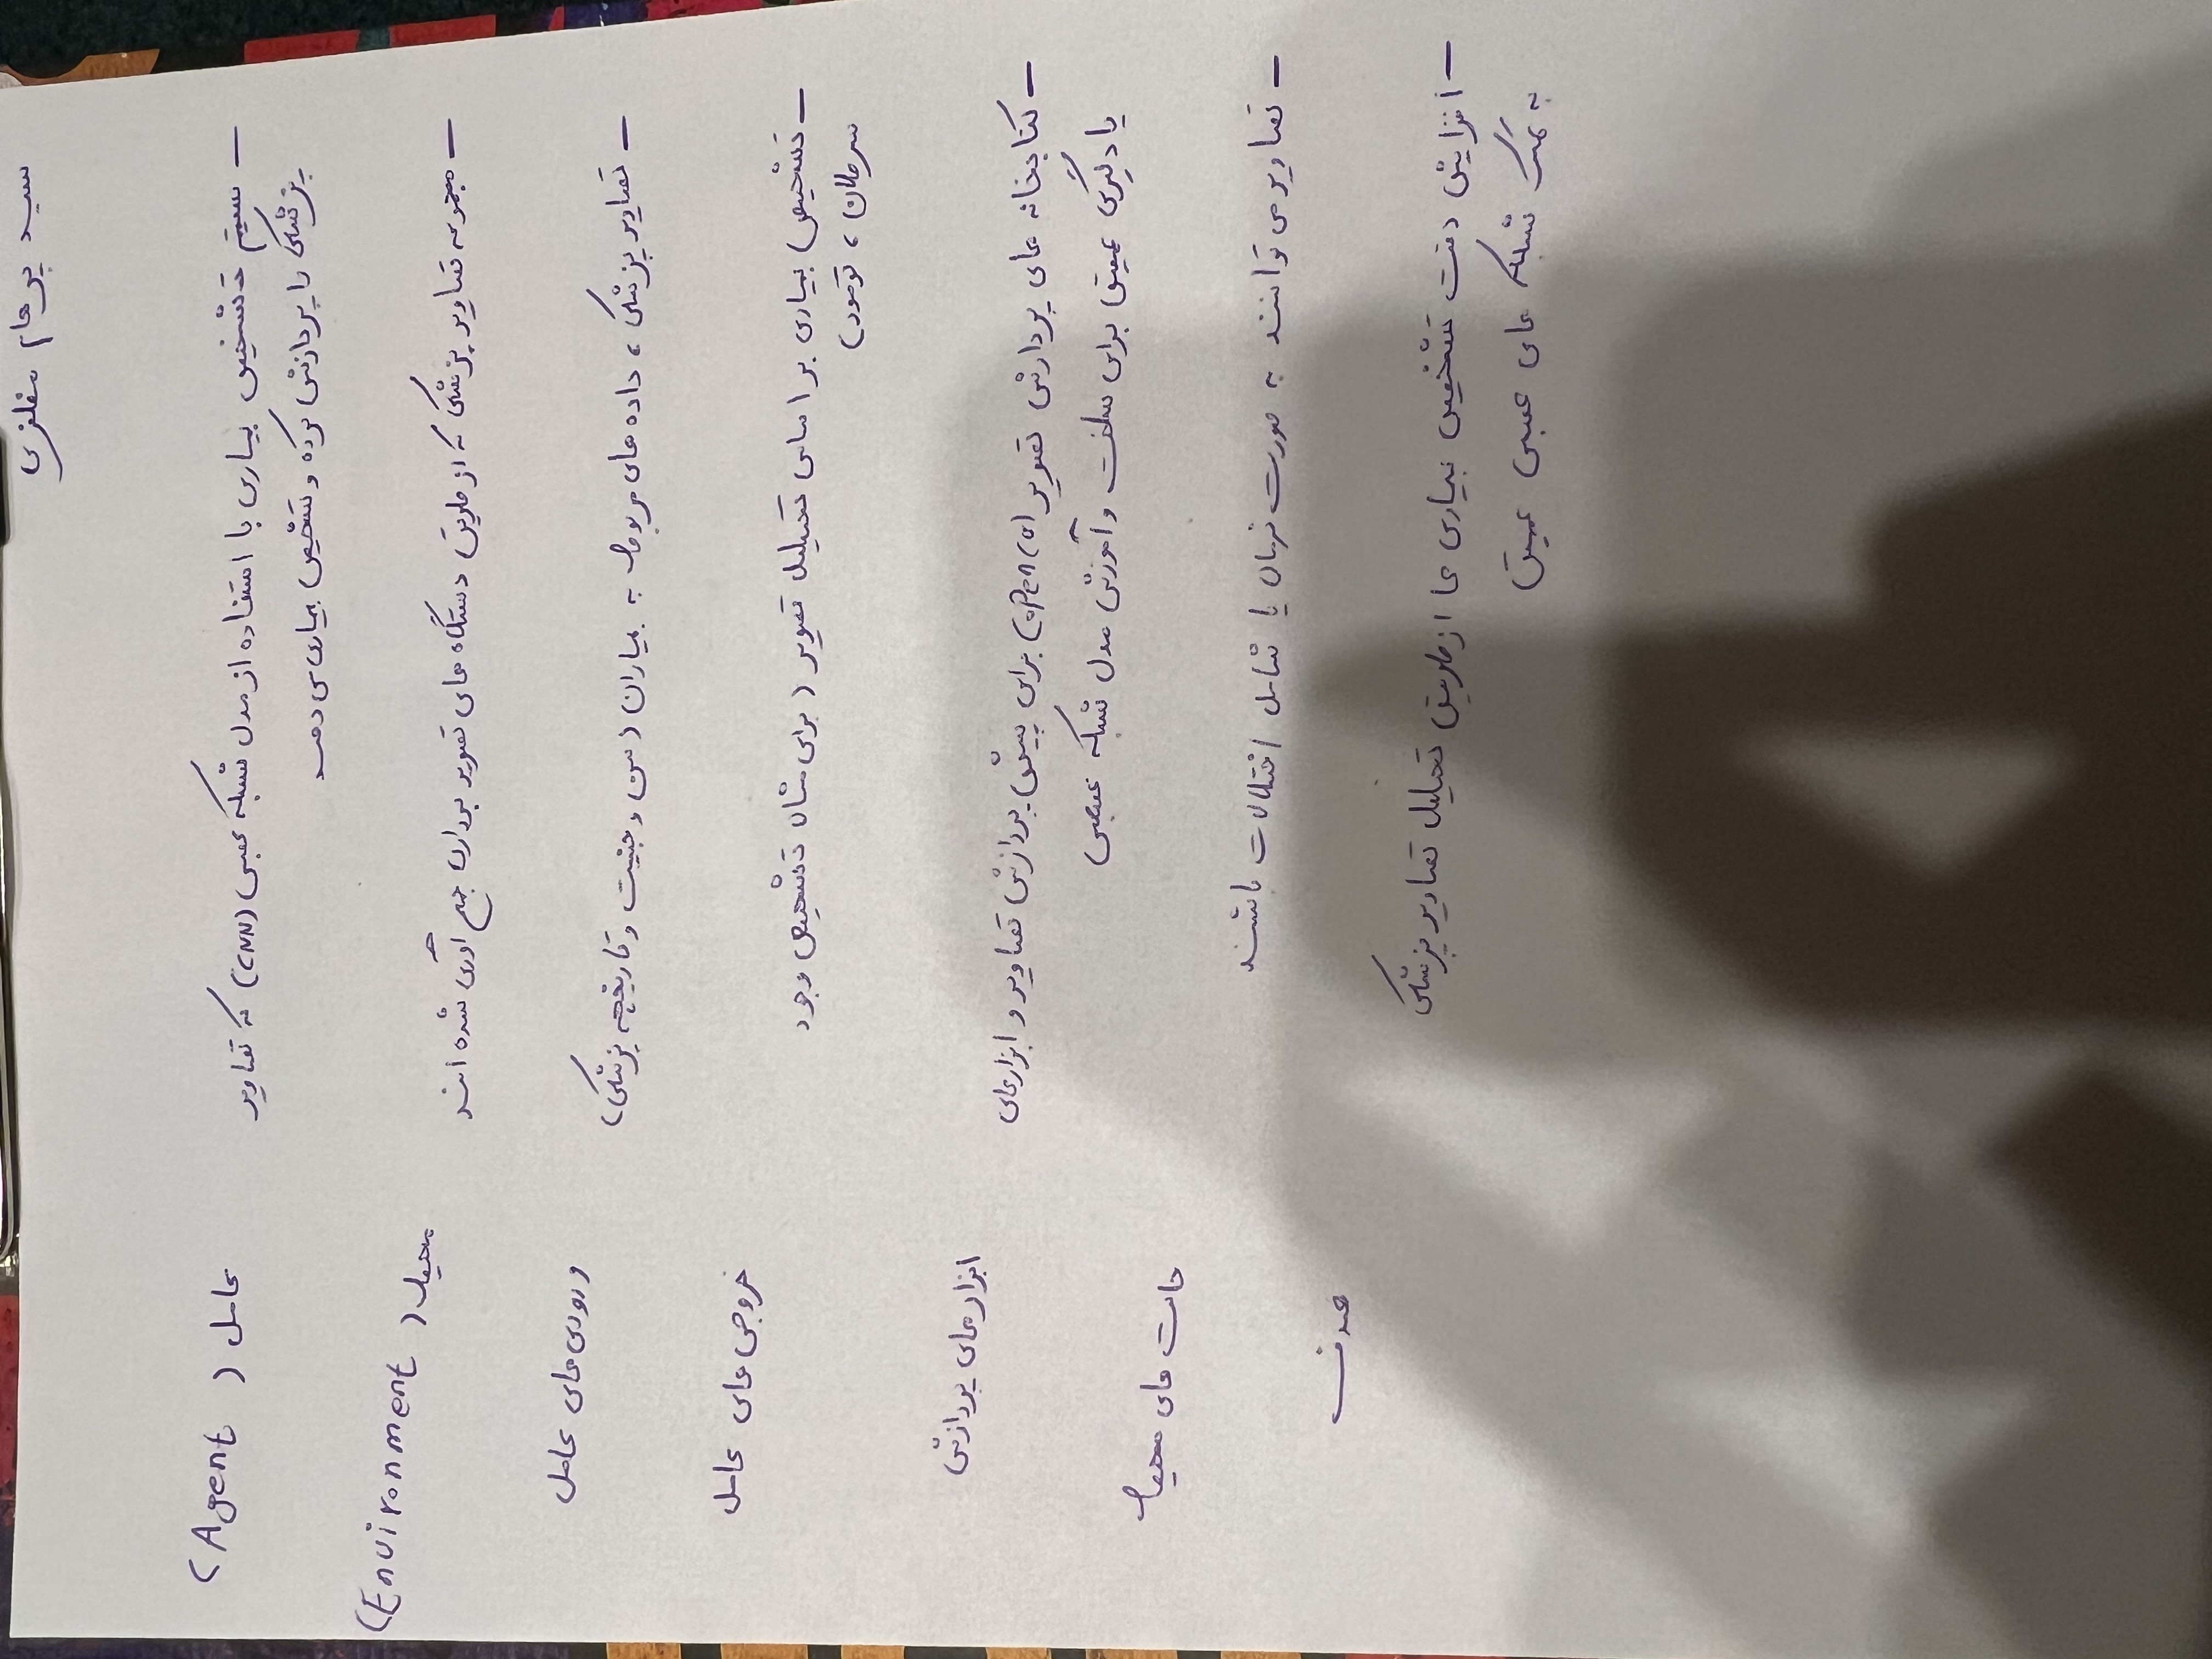 سید پرهام مظفری
عامل (Agent)
– سیستم تشخیص بیماری با استفاده از مدل شبکه عصبی (CNN) که تصاویر
پزشکی را پردازش کرده و تشخیص بیماری می دهد
محیط (Environment)
– مجموعه تصاویر پزشکی که از طریق دستگاه های تصویر برداری جمع آوری شده اند
ورودی های عامل
– تصاویر پزشکی، داده های مربوط به بیماران (سن و جنیست و تاریخچه پزشکی)
خروجی های عامل
– تشخیص بیماری بر اساس تحیلیل تصویر (برای مثال تشخیص وجود
سرطان، تومور)
ابزارهای پردازش
– کتابخانه های پردازش تصویر (openCV) برای پیش پردازش تصاویر و ابزارهای
یادگیری عمیق برای ساخت و آموزش مدل شبکه عصبی
حالت های محیط
– تصاویر می توانند به صورت نرمال یا شامل اختلالات باشند
هدف
– افزایش دقت تشخیص بیماری ها از طریق تحیلیل تصاویر پزشکی
به کمک شبکه های عصبی عمیق